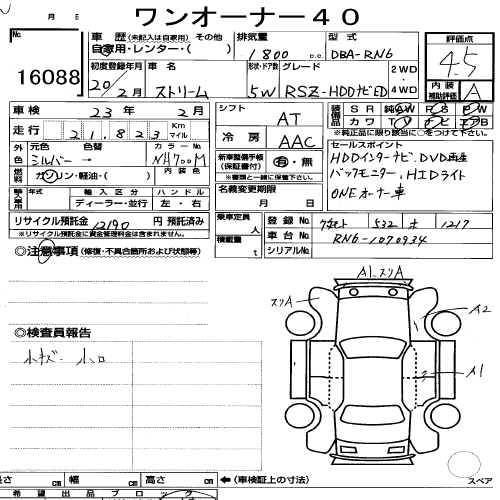 月 日
ワンオーナー40
No. 16088
車歴 (未記入は自家用) その他 自家用・レンター・( )
排気量 1800 c.c.
型式 DBA-RN6
評価点 4.5
初度登録年月 20年 2月
車名 ストリーム
形状・ドア数 5W
グレード RSZ-HDDナビED
2WD 4WD
内装補助評価 A
車検 23年 2月
シフト AT
装備品 SR 純正AW PS PW カワ TV ナビ エアB
※純正品に限り該当に○をつけて下さい。
走行 21,823 Km マイル
冷房 AAC
セールスポイント
HDDインターナビ、DVD再生
バックモニター、HIDライト
ONEオーナー車
外色 元色 色替 シルバー →
カラーNo. NH700M
内装色
燃料 ガソリン・軽油・( )
新車整備手帳 (保証書付) 有・無
※書類と一緒に保管して下さい。
輸入車用 年式 輸入区分 ディーラー・並行 ハンドル 左・右
名義変更期限 月 日
リサイクル預託金 12190 円 預託済み
※リサイクル預託金に資金管理料金は含まれません。
乗車定員 人
積載量 t
登録No. 532 1217
車台No. RN6-1070934
シリアルNo.
◎注意事項 (修復・不具合箇所および状態等)
A1.スリA
スリA
A2
A1
◎検査員報告
小キズ・小凹
長さ cm 幅 cm 高さ cm ←(車検証上の寸法)
スペア
希望出品ブロック